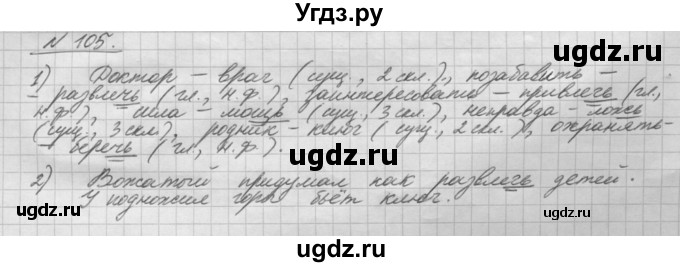 Угдз.ру
N 105.
1) Доктор – врач (сущ., 2 скл.), позабавить –
– развлечь (гл., н.ф.), заинтересовать – привлечь (гл.,
н.ф.), сила – мощь (сущ., 3 скл.), неправда – ложь
(сущ., 3 скл.), родник – ключ (сущ., 2 скл.), охранять–
– беречь (гл., н.ф.).
2) Вожатый придумал как развлечь детей.
У подножия горы бьёт ключ.
uwdz.ru
uwdz.ru
uwdz.ru
uwdz.ru
uwdz.ru